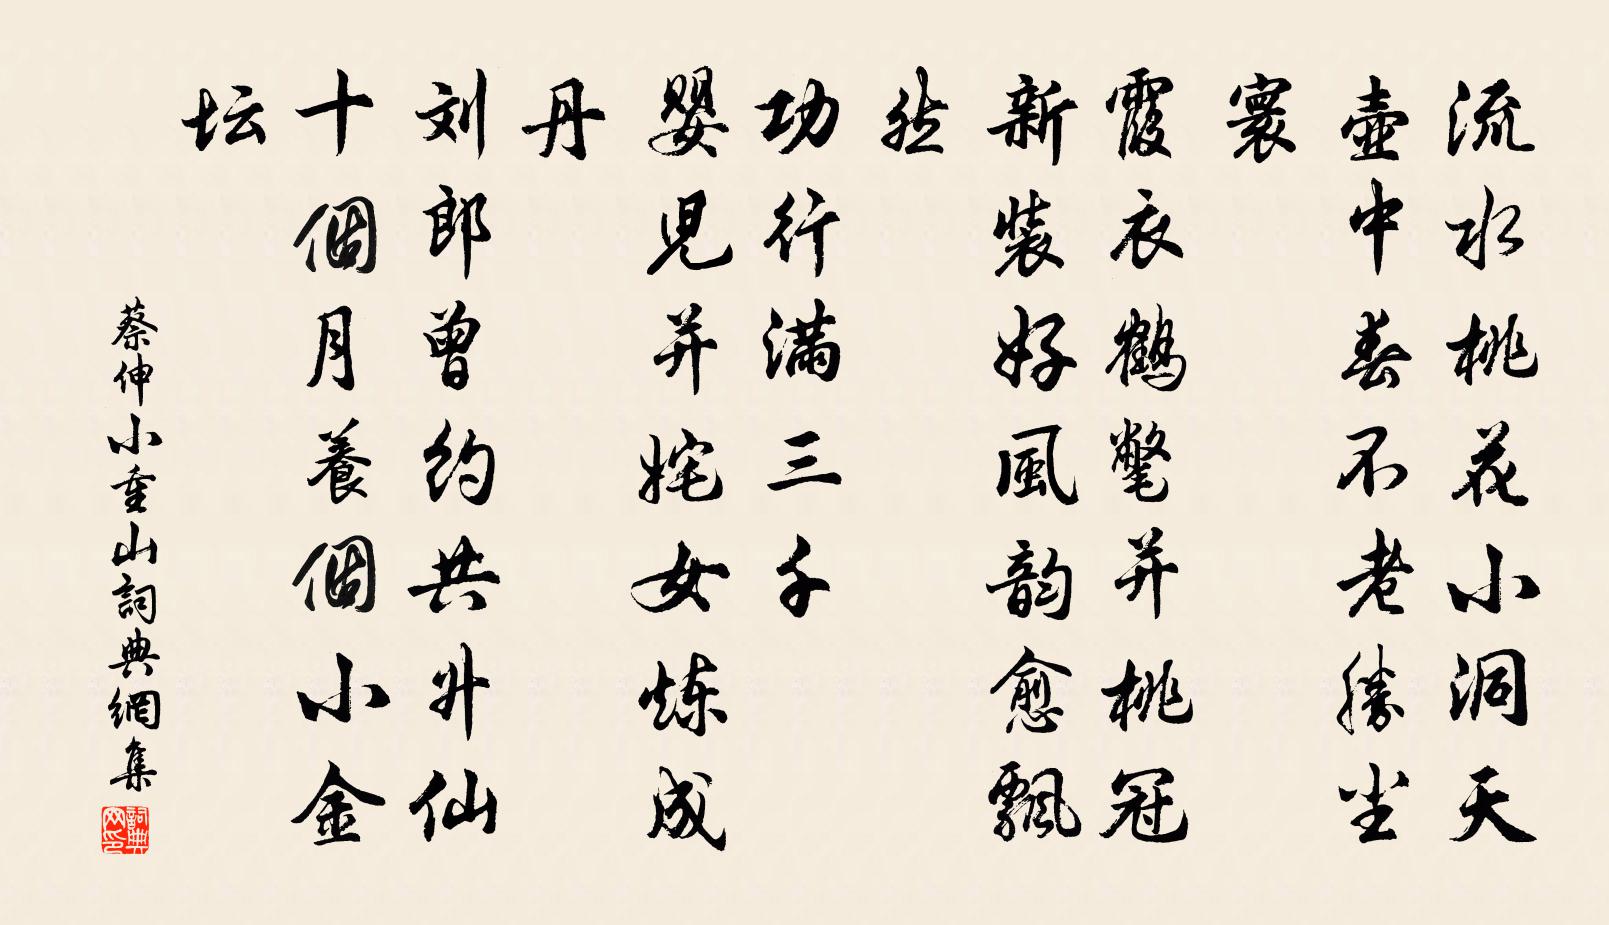 流水桃花小洞天
壶中春不老勝尘
寰
霞衣鹤氅并桃冠
新装好風韵愈飄
然
功行满三千
婴児并姹女炼成
丹
刘郎曾约共升仙
十個月養個小金
坛
蔡伸小重山詞典網集
詞典网印